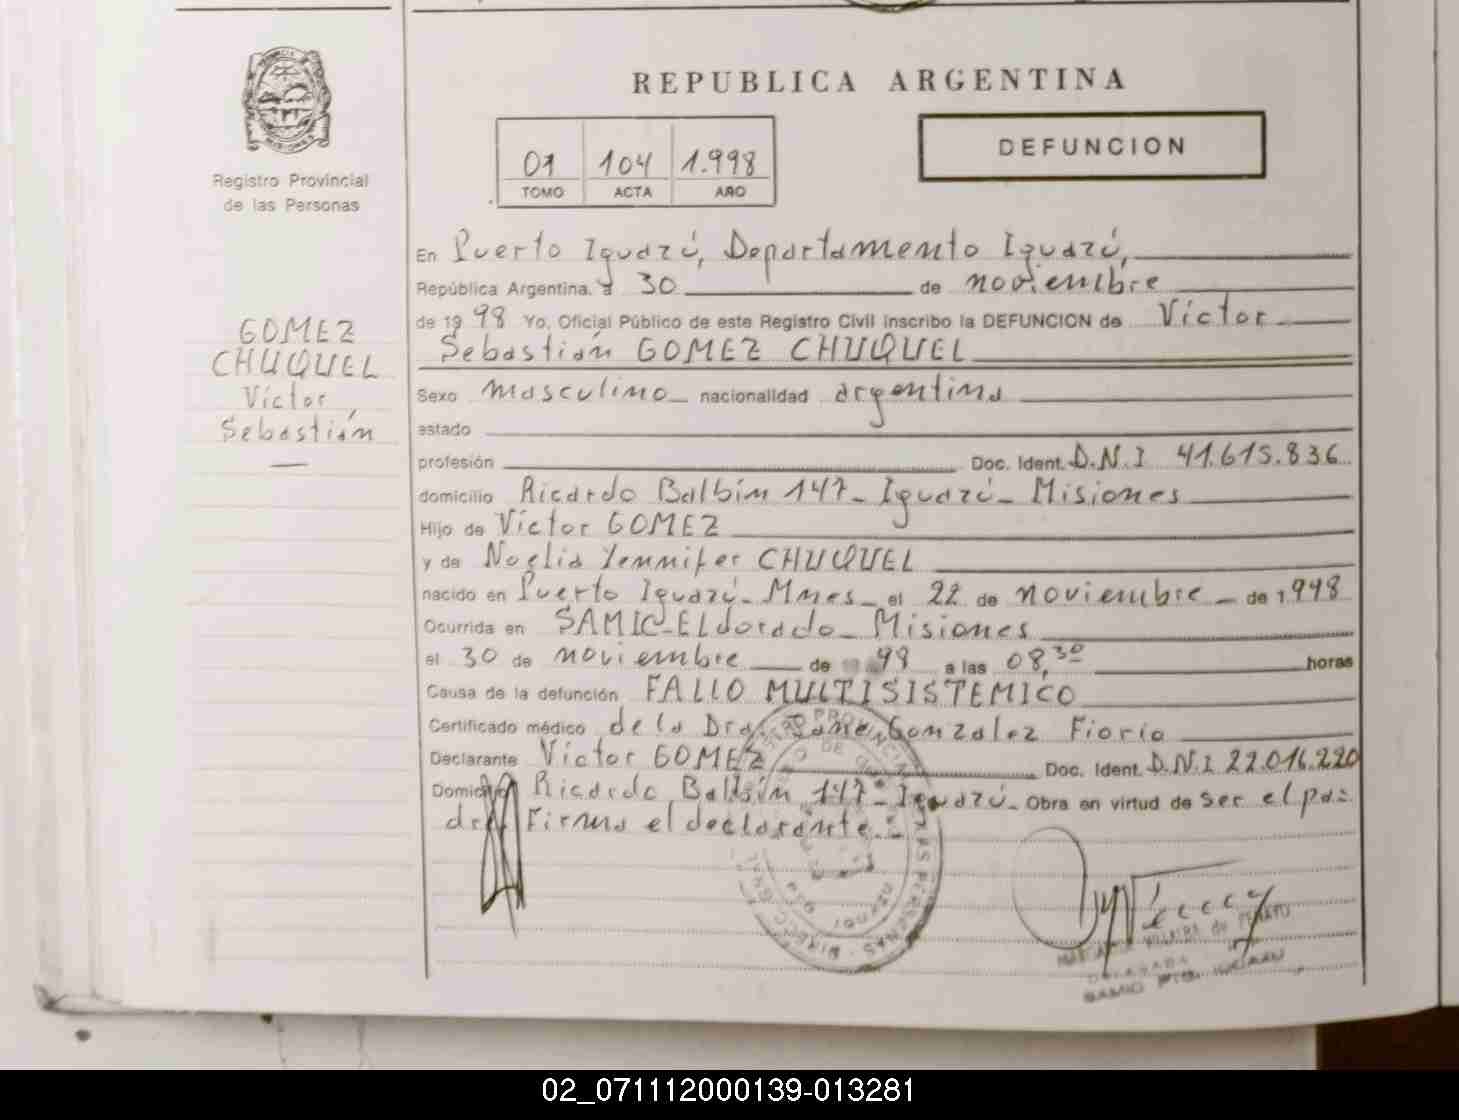 REPUBLICA ARGENTINA
Registro Provincial
de las Personas
01 104 1.998
TOMO ACTA AÑO
DEFUNCION
GOMEZ
CHUQUEL
Víctor
Sebastián
En Puerto Iguazú, Departamento Iguazú,
República Argentina, a 30 de noviembre
de 19 98 Yo, Oficial Público de este Registro Civil inscribo la DEFUNCION de Víctor
Sebastián GOMEZ CHUQUEL
Sexo masculino nacionalidad argentina
estado
profesión Doc. Ident. D.N.I 41.615.836
domicilio Ricardo Balbín 147 - Iguazú - Misiones
Hijo de Víctor GOMEZ
y de Noelia Yennifer CHUQUEL
nacido en Puerto Iguazú - Mnes - el 22 de noviembre de 1998
Ocurrida en SAMIC - Eldorado - Misiones
el 30 de noviembre de 98 a las 08,30 horas
Causa de la defunción FALLO MULTISISTEMICO
Certificado médico de la Dra. Gonzalez Fiorio
Declarante Víctor GOMEZ Doc. Ident. D.N.I 22.016.220
Domicilio Ricardo Balbín 147 - Iguazú - Obra en virtud de ser el pa=
dre. Firma el declarante. -
DELEGADA
02_071112000139-013281